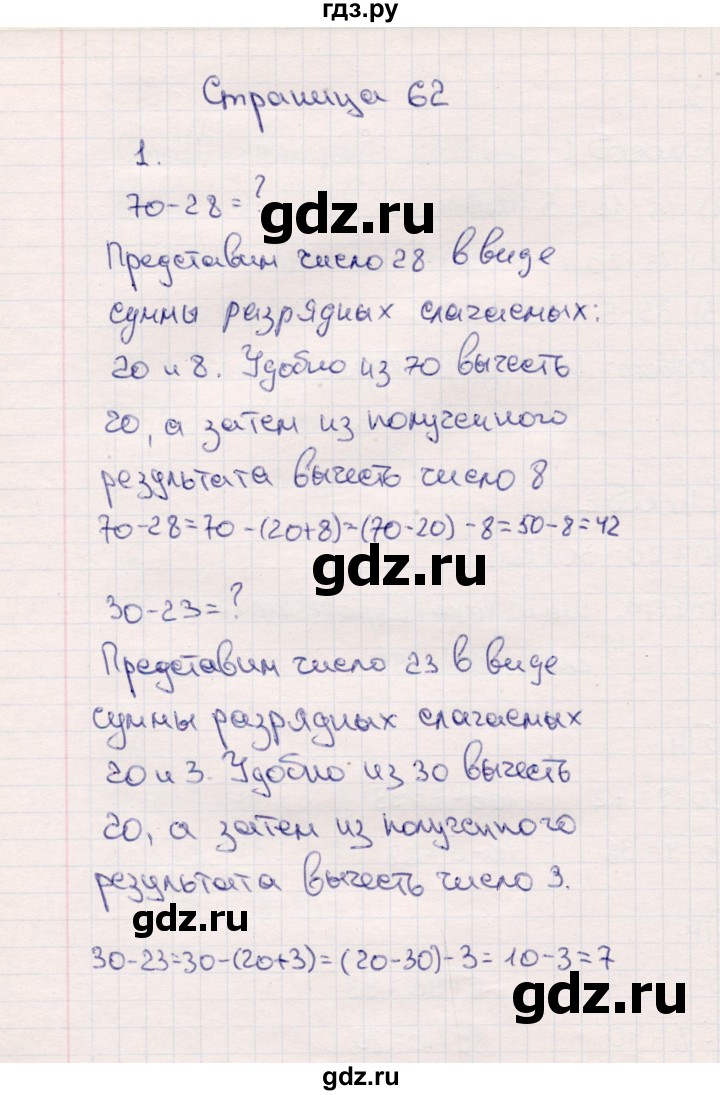 гдз.ру
Страница 62
1.
70-28=?
gdz.ru
Представим число 28 в виде
суммы разрядных слагаемых:
20 и 8. Удобно из 70 вычесть
20, а затем из полученного
результата вычесть число 8
70-28=70-(20+8)=(70-20)-8=50-8=42
gdz.ru
30-23=?
Представим число 23 в виде
суммы разрядных слагаемых
20 и 3. Удобно из 30 вычесть
20, а затем из полученного
результата вычесть число 3.
gdz.ru
30-23=30-(20+3)=(20-30)-3=10-3=7
gdz.ru
gdz.ru